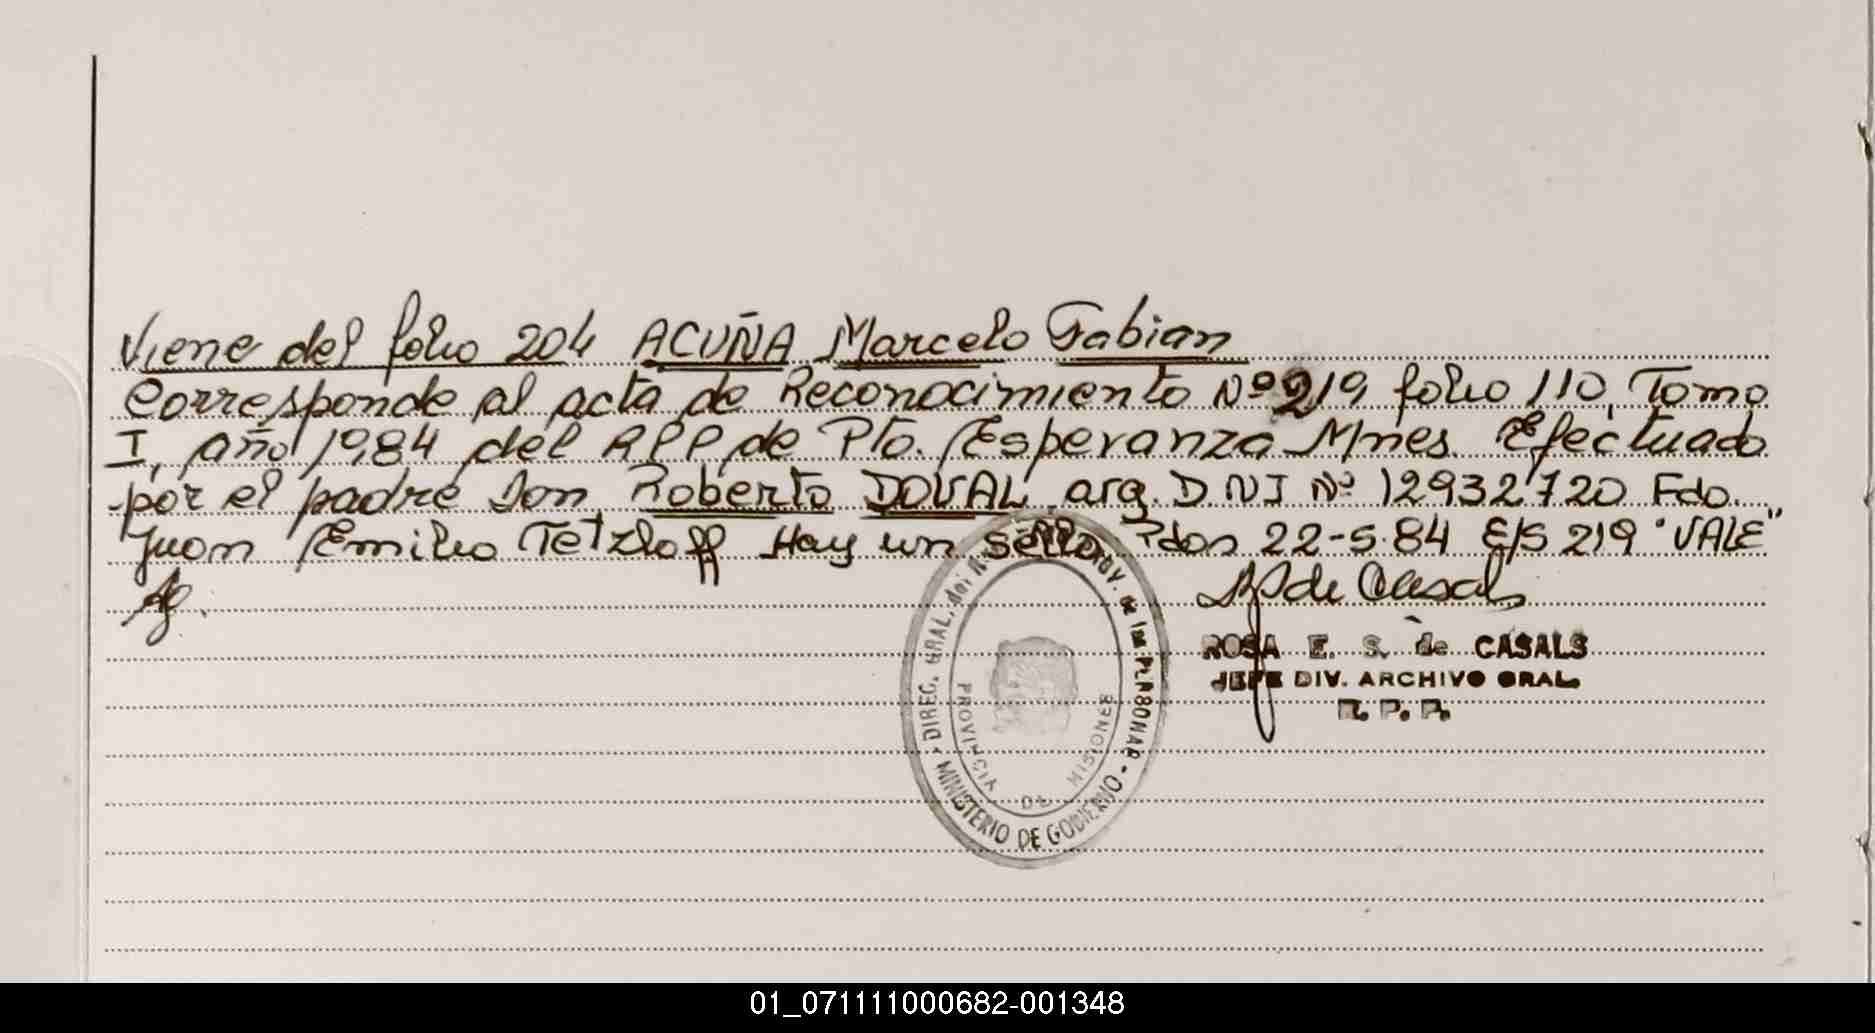 Viene del folio 204 ACUÑA Marcelo Fabian
Corresponde al acta de Reconocimiento Nº 219 folio 110, Tomo
I, año 1984 del RPP de Pto. Esperanza Mnes. Efectuado
por el padre Don Roberto DOVAL arg. D.N.I Nº 12932720 Fdo.
Juan Emilio Tetzloff Hay un sello Pdas 22-5-84 E/S 219 "VALE"
de Casals
ROSA E. S. de CASALS
JEFE DIV. ARCHIVO GRAL.
R. P. P.
DIREC. GRAL. del de las PERSONAS - MINISTERIO DE GOBIERNO
PROVINCIA DE MISIONES
01_071111000682-001348